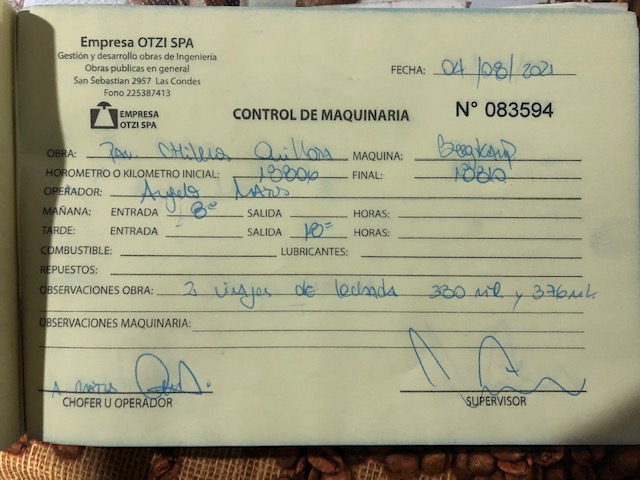 Empresa OTZI SPA
Gestión y desarrollo obras de Ingeniería
Obras públicas en general
San Sebastian 2957 Las Condes
Fono 225387413
FECHA: 04/08/2021
EMPRESA
OTZI SPA
CONTROL DE MAQUINARIA
N° 083594
OBRA: Chilena Quillon MAQUINA:
HOROMETRO O KILOMETRO INICIAL: FINAL:
OPERADOR: Angelo
MAÑANA: ENTRADA 8° SALIDA HORAS:
TARDE: ENTRADA SALIDA 18° HORAS:
COMBUSTIBLE: LUBRICANTES:
REPUESTOS:
OBSERVACIONES OBRA: 2 viajes de lechada 380 y 376
OBSERVACIONES MAQUINARIA:
CHOFER U OPERADOR
SUPERVISOR